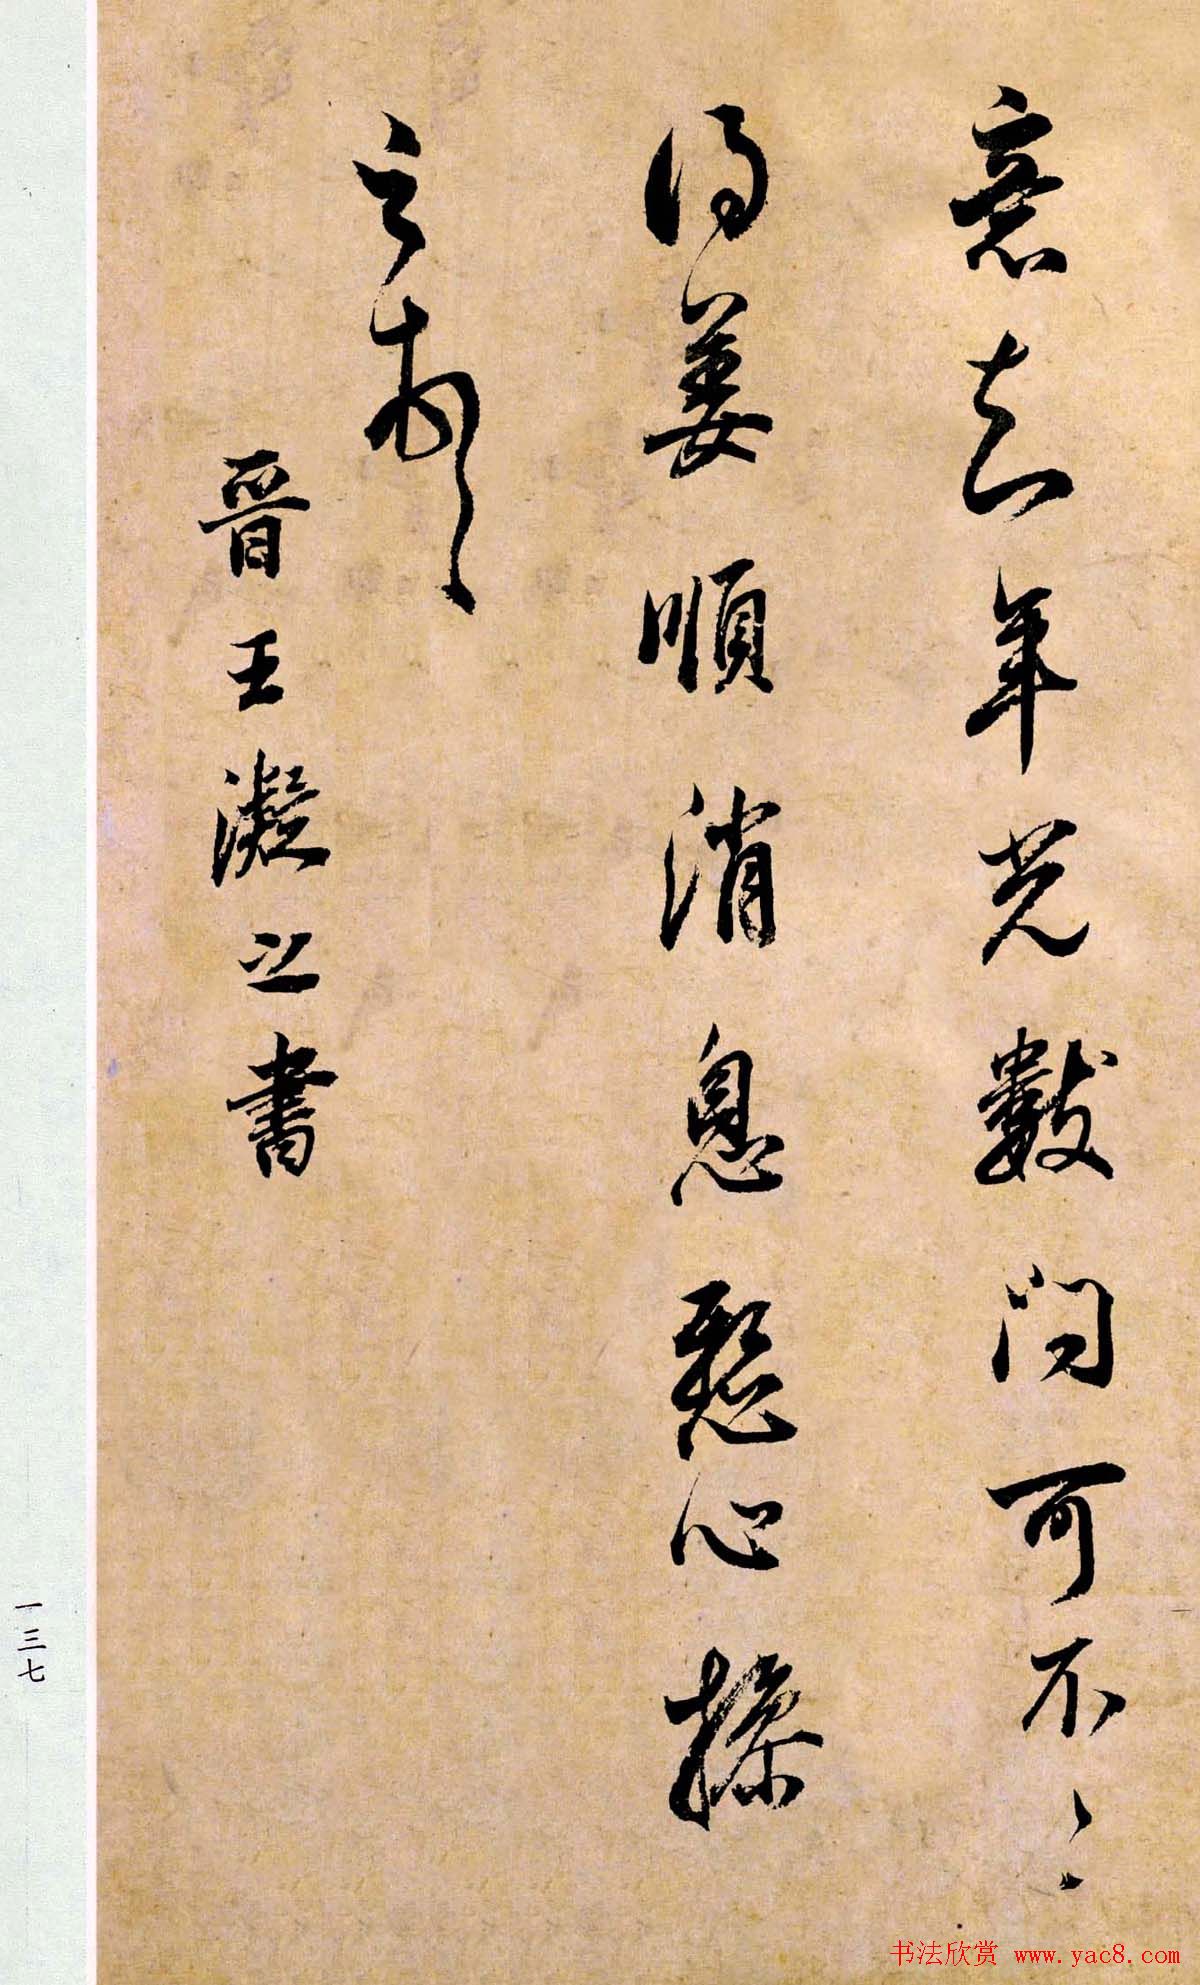 意年數問可不
得姜順消息懸心操
之
晉王凝之書
一三七
书法欣赏 www.yac8.com